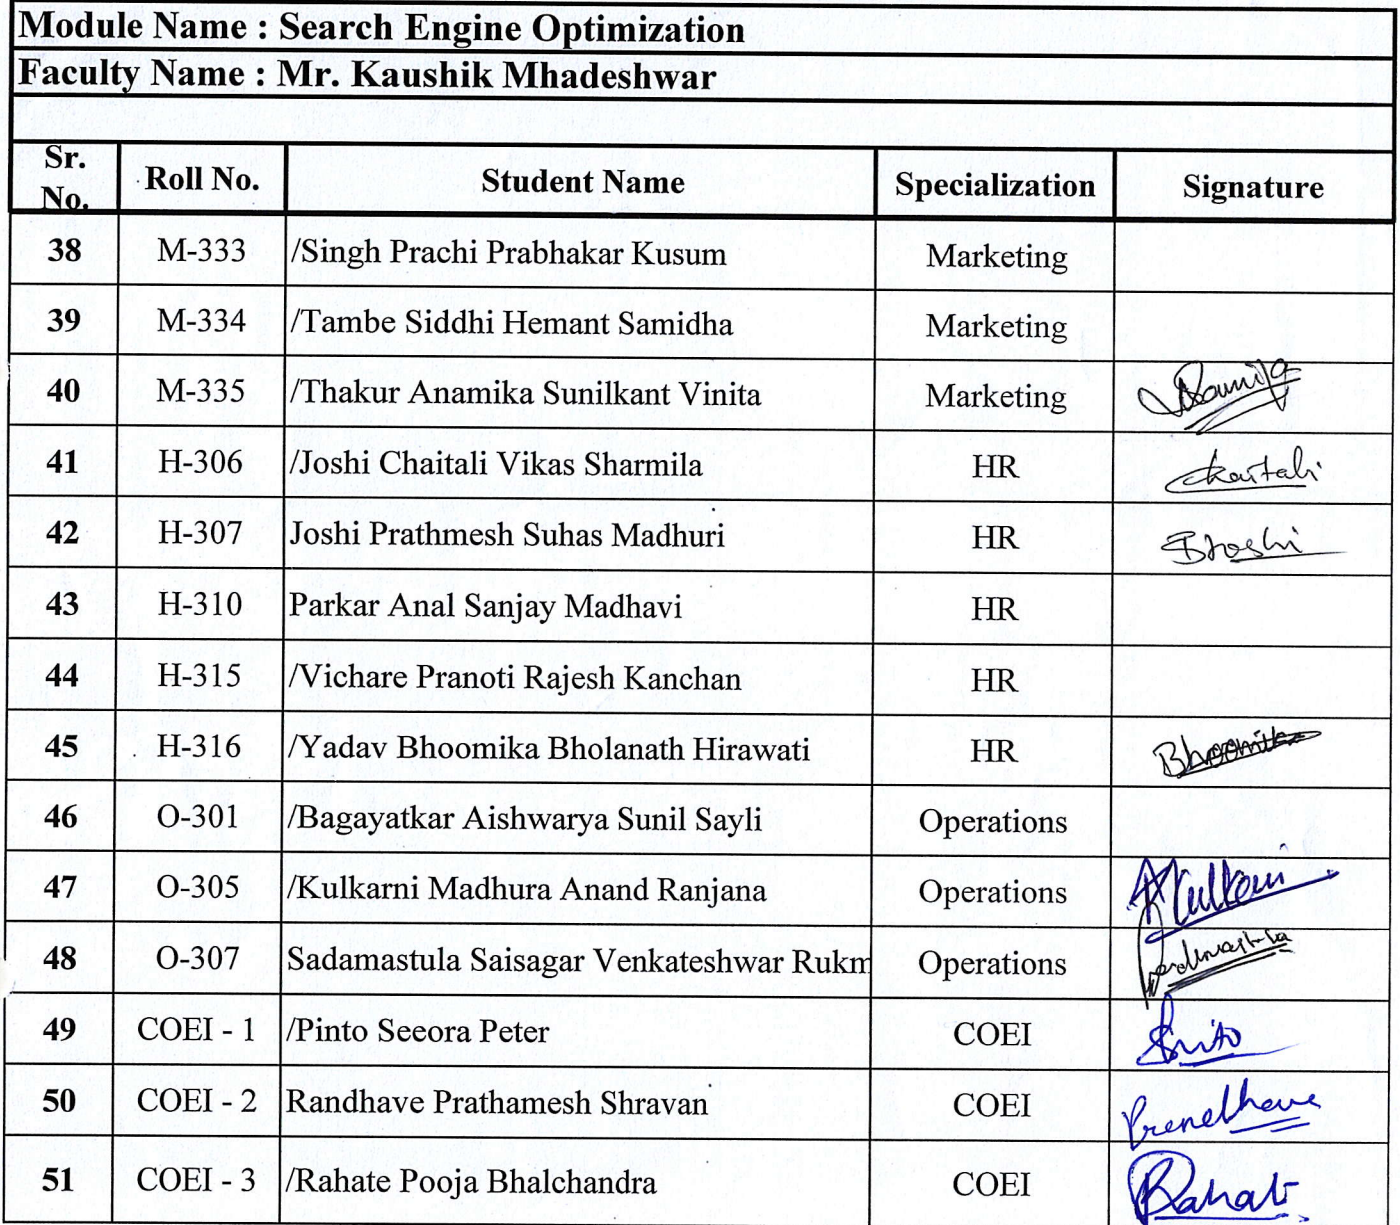 Module Name : Search Engine Optimization
Faculty Name : Mr. Kaushik Mhadeshwar
Sr. No. Roll No. Student Name Specialization Signature
38 M-333 /Singh Prachi Prabhakar Kusum Marketing
39 M-334 /Tambe Siddhi Hemant Samidha Marketing
40 M-335 /Thakur Anamika Sunilkant Vinita Marketing
41 H-306 /Joshi Chaitali Vikas Sharmila HR Chaitali
42 H-307 Joshi Prathmesh Suhas Madhuri HR
43 H-310 Parkar Anal Sanjay Madhavi HR
44 H-315 /Vichare Pranoti Rajesh Kanchan HR
45 H-316 /Yadav Bhoomika Bholanath Hirawati HR Bhoomika
46 O-301 /Bagayatkar Aishwarya Sunil Sayli Operations
47 O-305 /Kulkarni Madhura Anand Ranjana Operations
48 O-307 Sadamastula Saisagar Venkateshwar Rukm Operations
49 COEI - 1 /Pinto Seeora Peter COEI
50 COEI - 2 Randhave Prathamesh Shravan COEI
51 COEI - 3 /Rahate Pooja Bhalchandra COEI